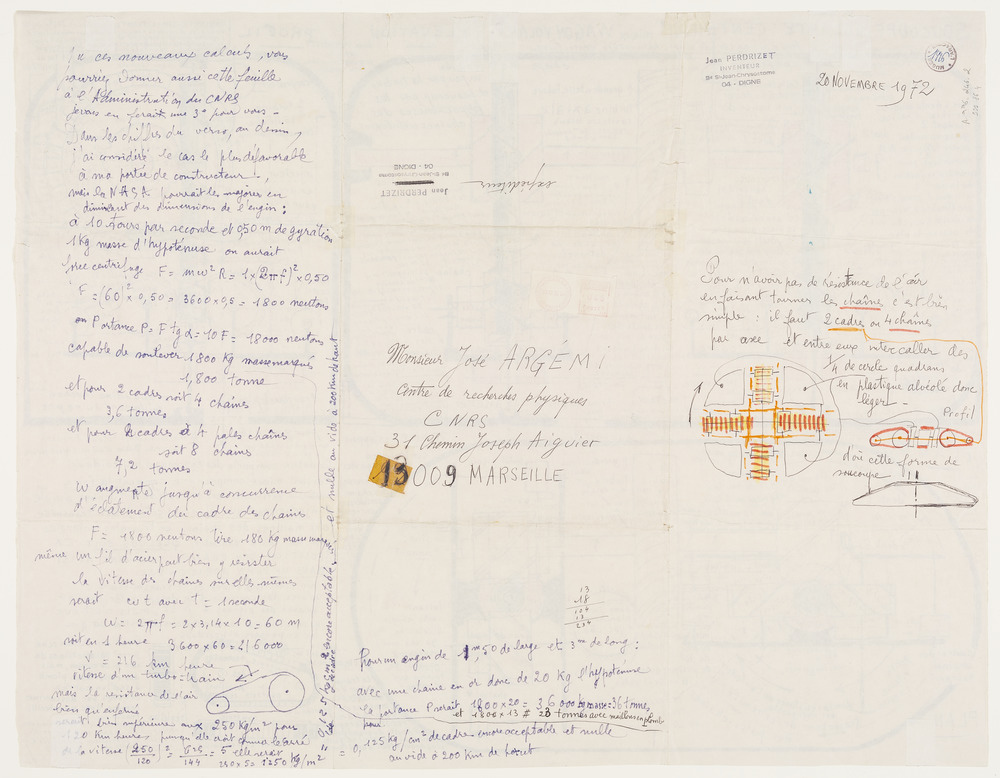 ces nouveaux calculs, vous
pourriez donner aussi cette feuille
à l'Administration du CNRS
j'en ferait une 3e pour vous -
Dans les chiffres du verso, au dessin,
j'ai considéré le cas le plus défavorable
à ma portée de constructeur !..,
mais la NASA pourrait les majorer en
diminuant des dimensions de l'engin :
à 10 tours par seconde et 0,50 m de gyration
1 Kg masse d'hypoténuse on aurait
force centrifuge F = mω²R = 1×(2πf)²×0,50
F = (60)² × 0,50 = 3600×0,5 = 1800 neutons
ou Portance P = F tg α = 10F = 18000 neutons
capable de soulever 1800 Kg masse marqués
1,800 tonne
et pour 2 cadres soit 4 chaînes
3,6 tonnes
et pour 2 cadres à 4 pales chaînes
soit 8 chaînes
7,2 tonnes
W augmente jusqu'à concurrence
d'éclatement du cadre des chaînes
F = 1800 neutons tire 180 Kg masse marqués
même un fil d'acier peut bien y resister
la vitesse des chaînes sur elles mêmes
serait ω t avec t = 1 seconde
ω = 2πf = 2×3,14×10 = 60 m
soit en 1 heure 3600×60 = 216000
V = 216 Km heure
vitesse d'un turbo-train
mais la resistance de l'air
bien qu'enfermé
serait bien superieure aux 250 Kg/m² pour
120 Km heures puisqu'elle croît comme le carré
de la vitesse (250/120)² = 625/144 = 5 elle serait
250×5 = 1250 Kg/m²
= 0,125 Kg/cm² de cadre encore acceptable et nulle au vide à 200 Km de haut
Jean PERDRIZET
INVENTEUR
Bd St-Jean-Chrysostome
04 - DIGNE
expéditeur
Monsieur José ARGÉMI
Centre de recherches physiques
CNRS
31 Chemin Joseph Aiguier
13009 MARSEILLE
13
18
104
13
234
Pour un engin de 1m,50 de large et 3m de long :
avec une chaîne en or donc de 20 Kg l'hypoténuse
la portance P serait 1800×20 = 36000 Kg masse = 36 tonnes
pour et 1800×13 # 23 tonnes avec maillons en plomb
= 0,125 Kg/cm² de cadre encore acceptable et nulle
au vide à 200 Km de haut
Jean PERDRIZET
INVENTEUR
Bd St-Jean-Chrysostome
04 - DIGNE
20 NOVEMBRE 1972
Pour n'avoir pas de résistance de l'air
en faisant tourner les chaînes c'est très
simple : il faut 2 cadres ou 4 chaînes
par axe et entre eux intercaller des
1/4 de cercle quadrans
en plastique alvéolé donc
léger -
Profil
d'où cette forme de
soucoupe